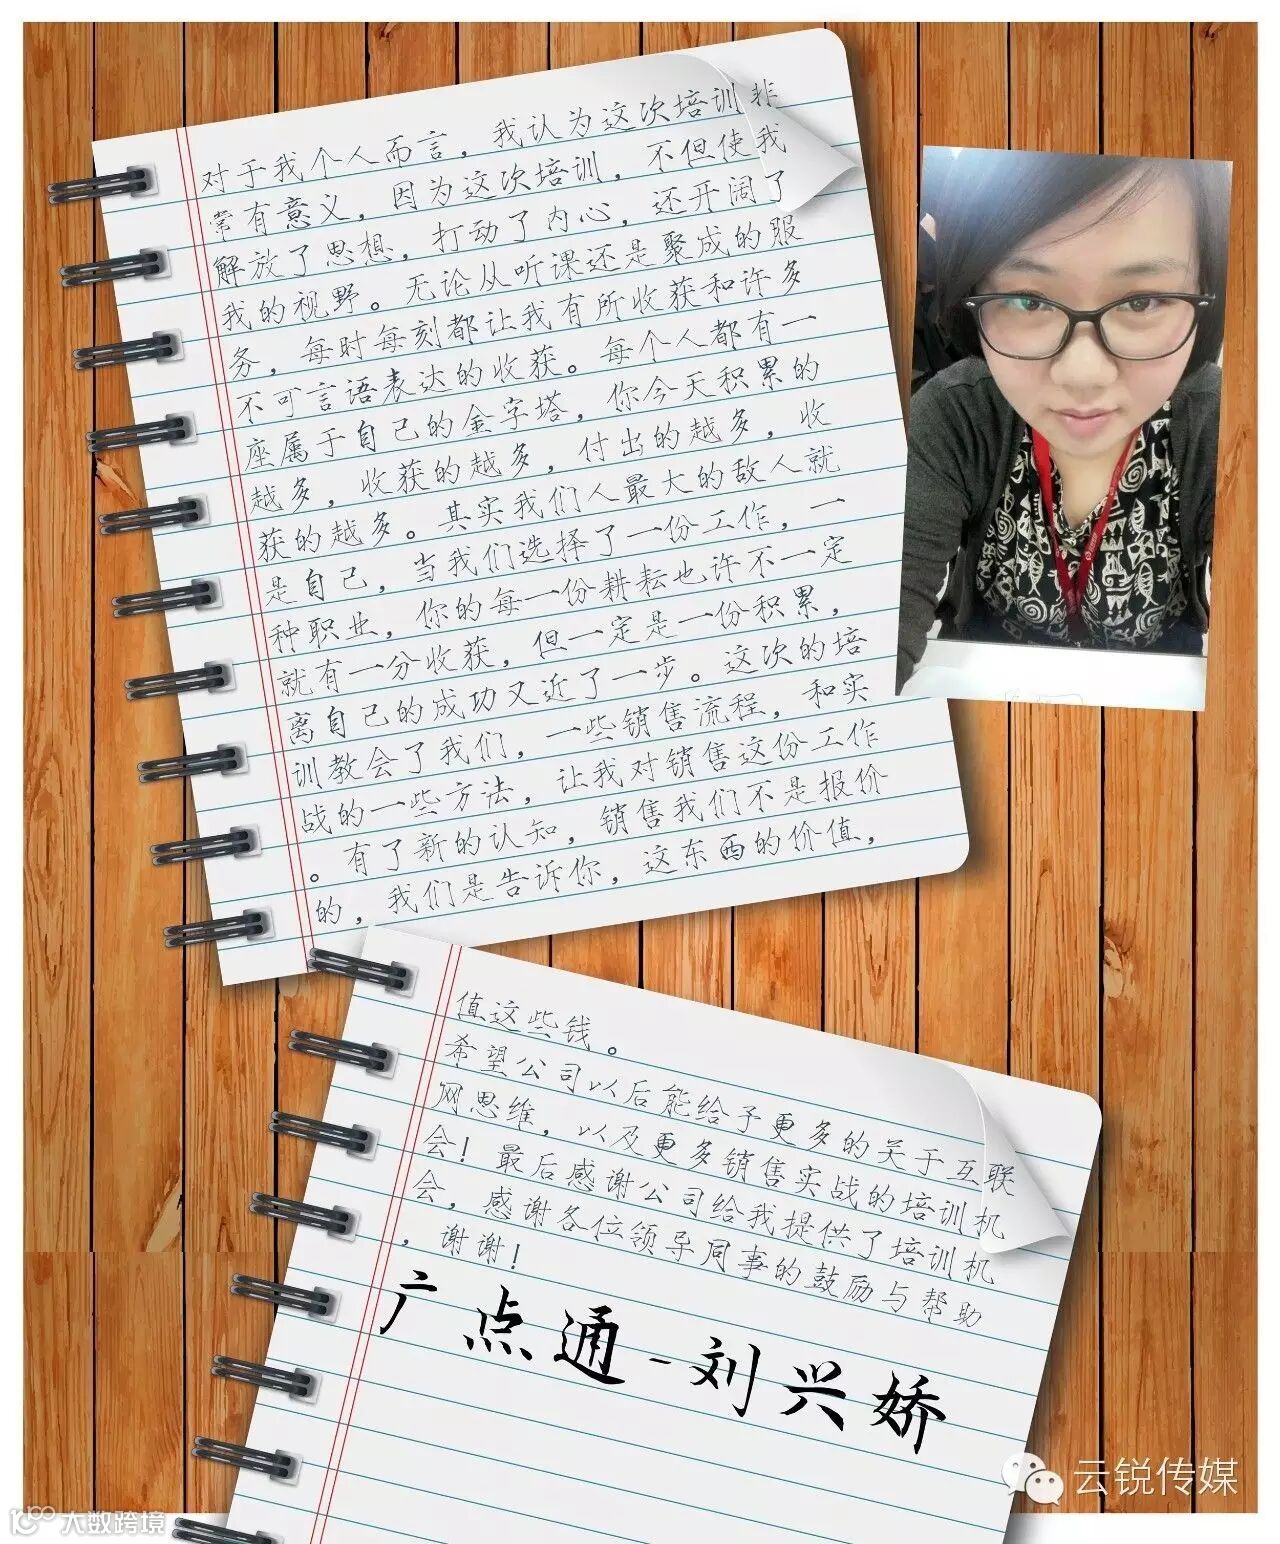 对于我个人而言，我认为这次培训非
常有意义，因为这次培训，不但使我
解放了思想，打动了内心，还开阔了
我的视野。无论从听课还是聚成的服
务，每时每刻都让我有所收获和许多
不可言语表达的收获。每个人都有一
座属于自己的金字塔，你今天积累的
越多，收获的越多，付出的越多，收
获的越多。其实我们人最大的敌人就
是自己，当我们选择了一份工作，一
种职业，你的每一份耕耘也许不一定
就有一分收获，但一定是一份积累，
离自己的成功又近了一步。这次的培
训教会了我们，一些销售流程，和实
战的一些方法，让我对销售这份工作
。有了新的认知，销售我们不是报价
的，我们是告诉你，这东西的价值，
值这些钱。
希望公司以后能给予更多的关于互联
网思维，以及更多销售实战的培训机
会！最后感谢公司给我提供了培训机
会，感谢各位领导同事的鼓励与帮助
，谢谢！
广点通-刘兴娇
云锐传媒
大数跨境